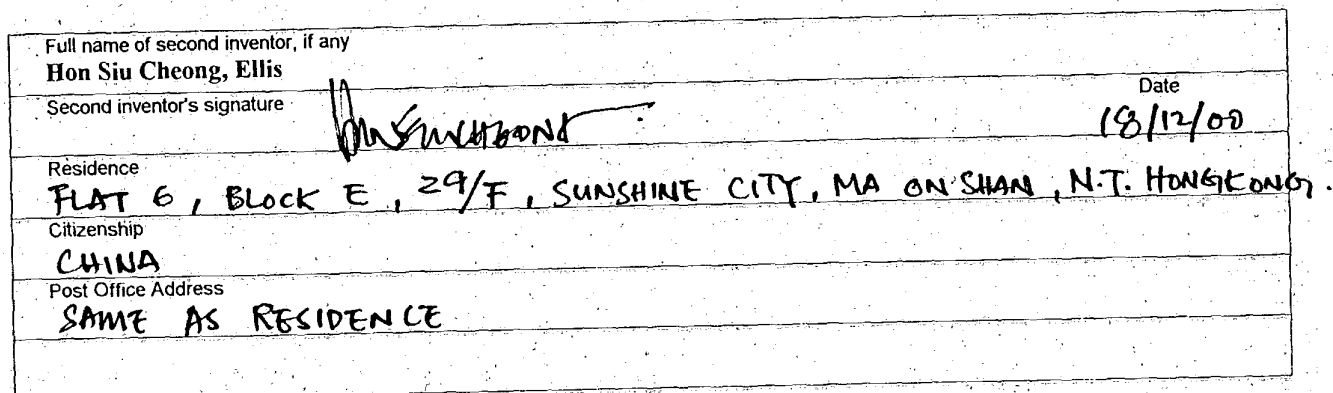 Full name of second inventor, if any
Hon Siu Cheong, Ellis
Second inventor's signature
Date
18/12/00
Residence
FLAT 6, BLOCK E, 29/F, SUNSHINE CITY, MA ON SHAN, N.T. HONGKONG.
Citizenship
CHINA
Post Office Address
SAME AS RESIDENCE